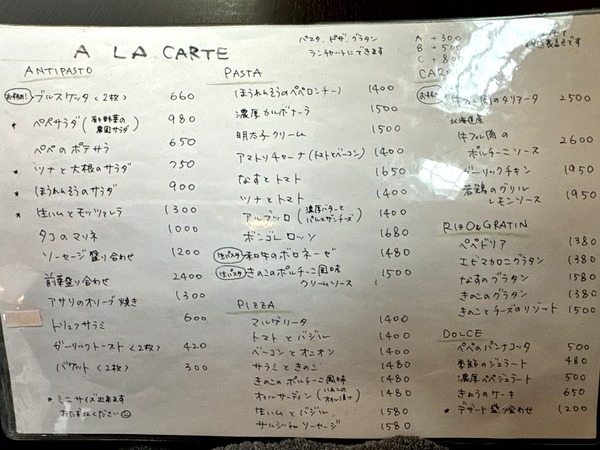 A LA CARTE
パスタ、ピザ、グラタン
ランチセットにできます
A +300
B +500
C +800
ANTIPASTO
ブルスケッタ <2枚> 660
* ペペサラダ (有機野菜の農園サラダ) 980
ペペのポテサラ 650
* ツナと大根のサラダ 750
* ほうれんそうのサラダ 900
* 生ハムとモッツァレラ 1300
タコのマリネ 1000
ソーセージ盛り合わせ 1200
前菜盛り合わせ 2400
アサリのオリーブ焼き 1300
トリュフサラミ 600
ガーリックトースト <2枚> 420
バゲット <2枚> 300
* ミニサイズ出来ます
おたずねください
PASTA
ほうれんそうのペペロンチーノ 1400
濃厚カルボナーラ 1500
明太子クリーム 1500
アマトリチャーナ (トマトとベーコン) 1400
なすとトマト 1650
ツナとトマト 1400
アルブッロ (濃厚バターとパルメザンチーズ) 1400
ボンゴレロッソ 1680
生パスタ 和牛のボロネーゼ 1480
生パスタ きのこのポルチーニ風味
クリームソース 1500
PIZZA
マルゲリータ 1400
トマトとバジル 1400
ベーコンとオニオン 1400
サラミときのこ 1480
きのこのポルチーニ風味 1480
オイルサーディン 1480
生ハムとバジル 1580
サルシッチャソーセージ 1580
CAR
牛フィレ肉のタリアータ 2500
北海道産
牛フィレ肉の
ポルチーニソース 2600
ガーリックチキン 1950
若鶏のグリル
レモンソース 1950
RIZO&GRATIN
ペペドリア 1380
エビマカロニグラタン 1380
なすのグラタン 1580
きのこのグラタン 1380
きのことチーズのリゾット 1500
DOLCE
ペペのパンナコッタ 500
季節のジェラート 480
濃厚ペペジェラート 500
きょうのケーキ 650
* デザート盛り合わせ 1200